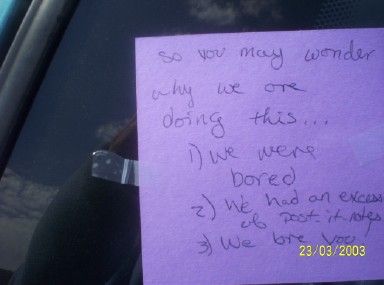 so you may wonder
why we are
doing this...
1) we were
bored
2) We had an excess
of post it notes
3) We love you
23/03/2003